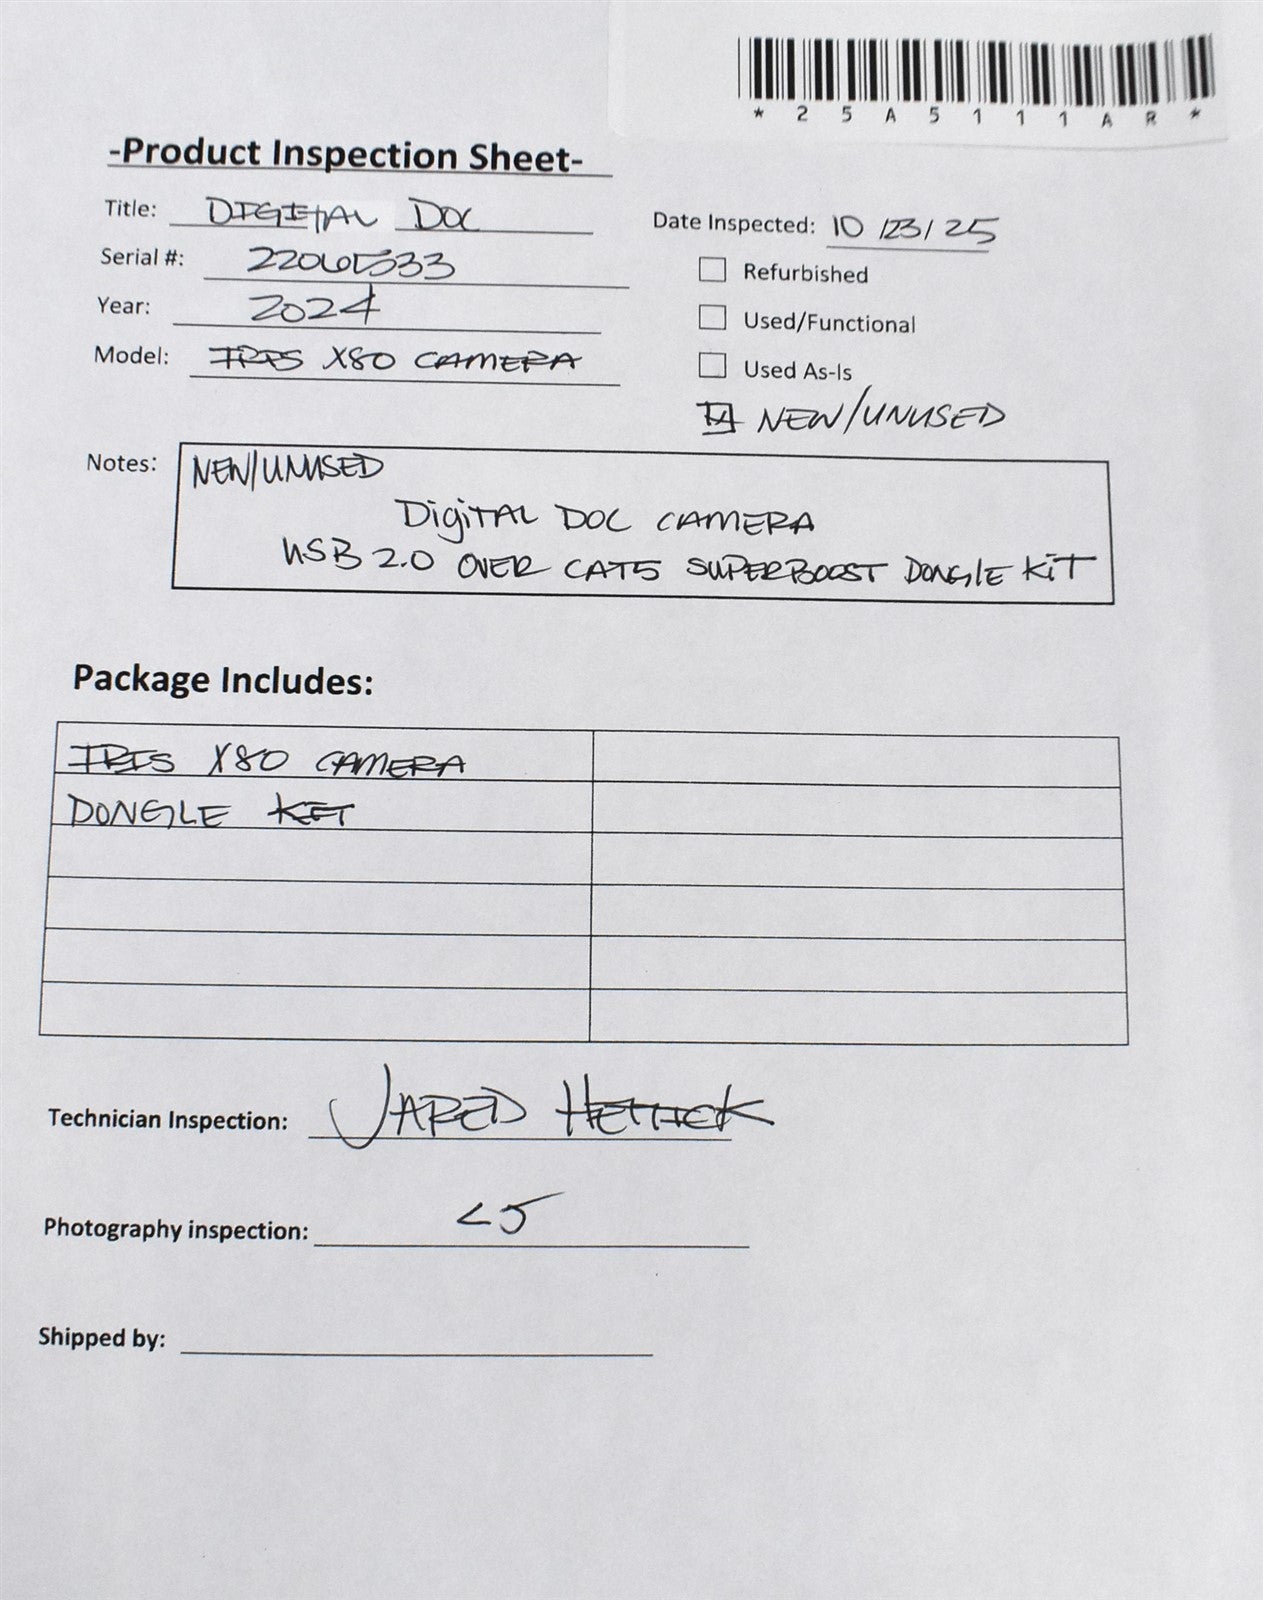 *25A5111AR*
-Product Inspection Sheet-
Title: DIGITAL DOC
Date Inspected: 10/23/25
Serial #:
Refurbished
Year: 2024
Used/Functional
Model: IRIS X80 CAMERA
Used As-Is
NEW/UNUSED
Notes: NEW/UNUSED
DigiTAL DOC CAMERA
USB 2.0 OVER CAT5 SUPERBOOST DONGLE KiT
Package Includes:
IRIS X80 CAMERA
DONGLE KIT
Technician Inspection: JARED
Photography inspection:
Shipped by: